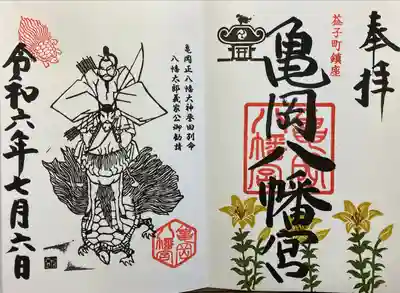 奉拝
益子町鎮座
亀岡八幡宮
亀岡八幡宮
亀岡正八幡大神誉田別命
八幡太郎義家公御勧請
令和六年七月六日
亀岡八幡宮